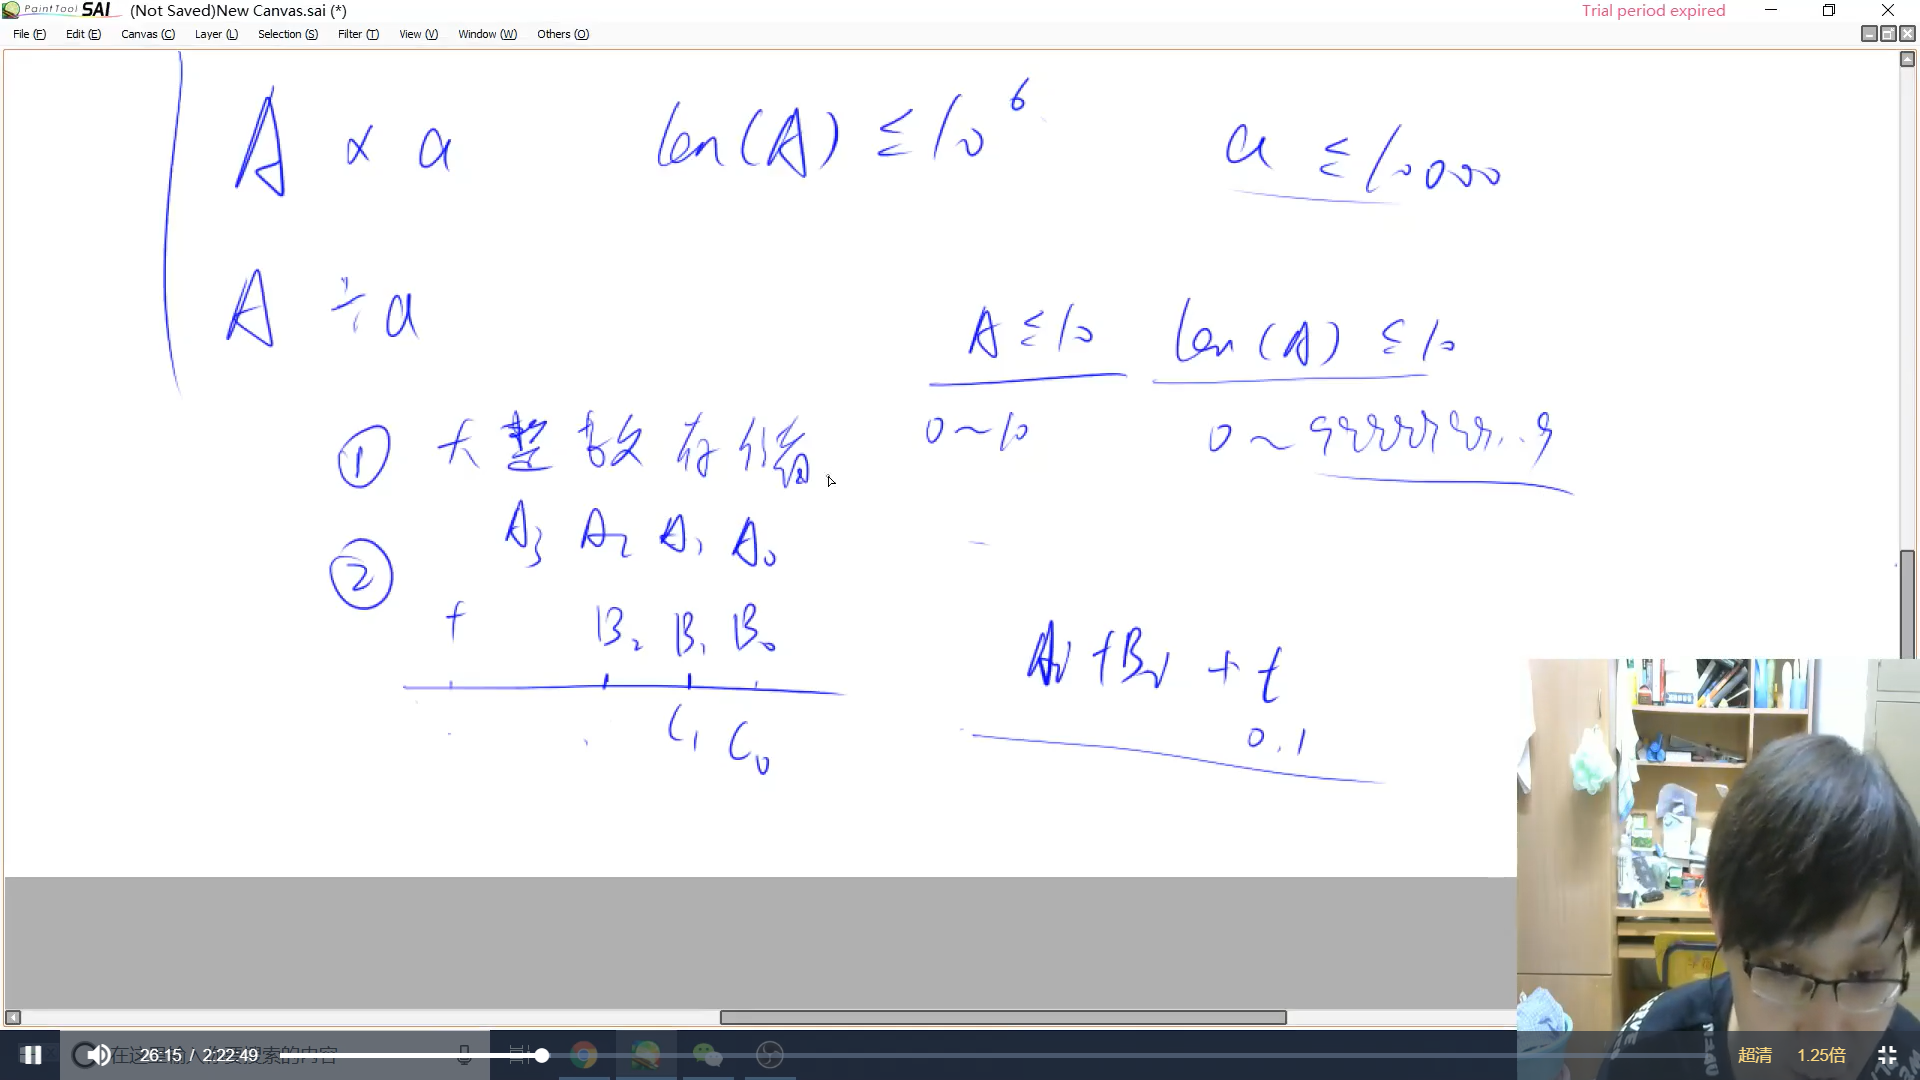 PaintTool SAI (Not Saved)New Canvas.sai (*) Trial period expired
File (F) Edit (E) Canvas (C) Layer (L) Selection (S) Filter (T) View (V) Window (W) Others (O)
A × a len(A) ≤ 10^6 a ≤ 10000
A ÷ a
A ≤ 10 len(A) ≤ 10
① 大整数存储 0～10 0～99999999...9
A3 A2 A1 A0
②
+ B2 B1 B0
Ai + Bi + t
C1 C0 0.1
26:15 / 2:22:49 在这里输入你要搜索的内容 超清 1.25倍